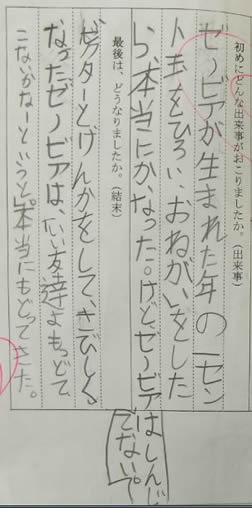 初めにどんな出来事がおこりましたか。(出来事)
ゼノビアが生まれた年の一セン
ト玉をひろい、おねがいをした
ら、本当にかなった。けど、ゼノビア
はしんじ
てない。
最後は、どうなりましたか。(結末)
ビクターとけんかをして、さびしく
なったゼノビアは、友達よもどって
こないかなーというと、本当にもどってきた。